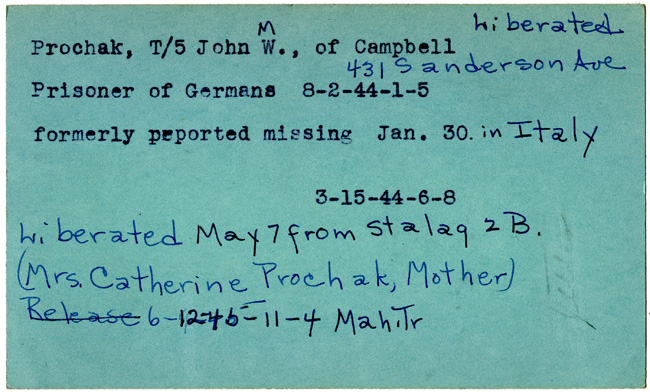 Liberated
M
Prochak, T/5 John W., of Campbell
431 Sanderson Ave
Prisoner of Germans 8-2-44-1-5
formerly peported missing Jan. 30. in Italy
3-15-44-6-8
Liberated May 7 from Stalag 2 B.
(Mrs. Catherine Prochak, Mother)
Release 6-12-45-11-4 Mah.Tr